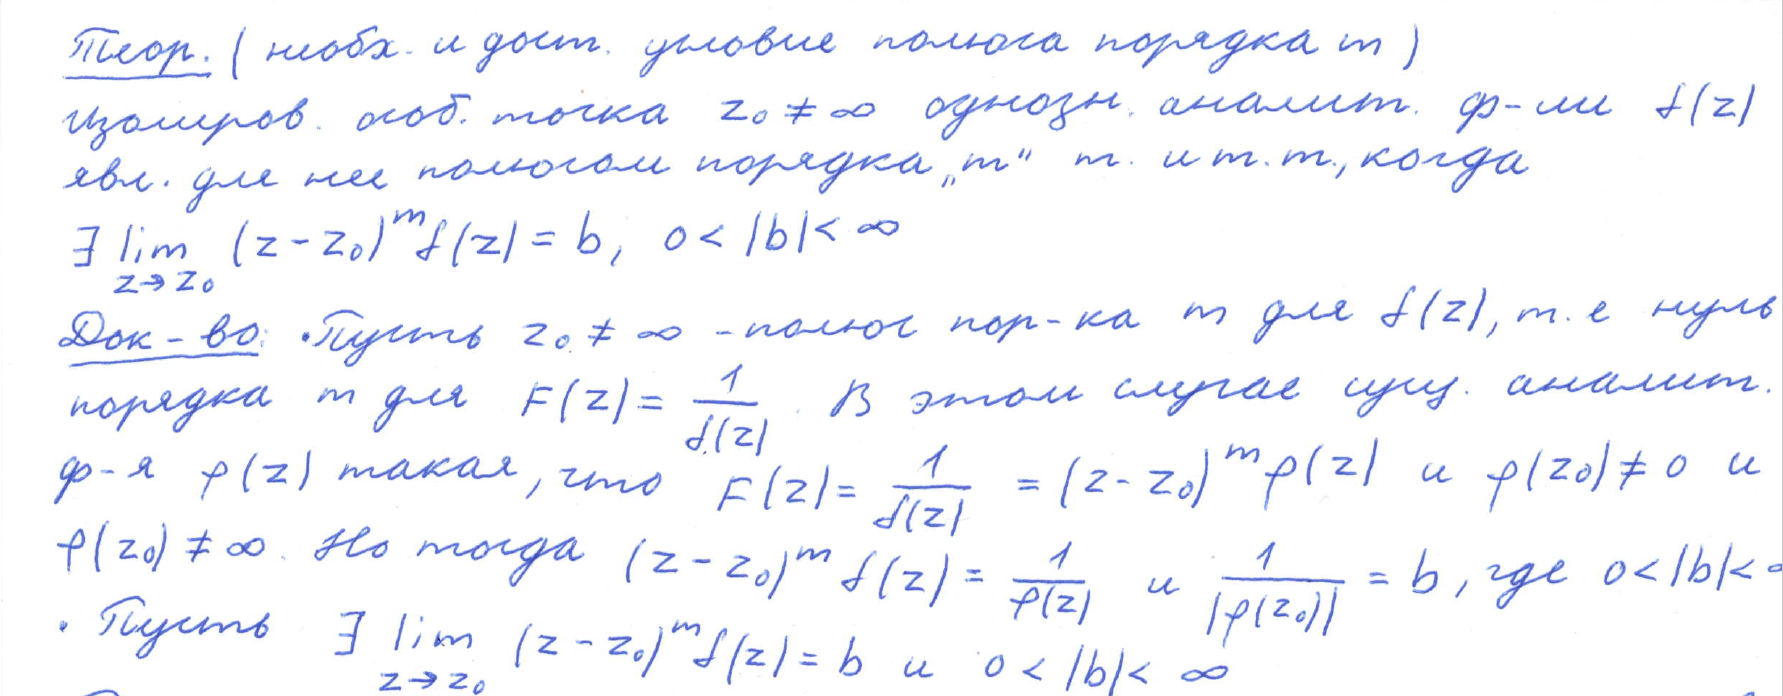 Теор. (необх. и дост. условие полюса порядка m)
Изолиров. особ. точка z₀ ≠ ∞ однозн. аналит. ф-ли f(z)
явл. для нее полюсом порядка „m" т. и т.т., когда
∃ lim (z - z₀)ᵐ f(z) = b, 0 < |b| < ∞
z→z₀
Док-во: •Пусть z₀ ≠ ∞ - полюс пор-ка m для f(z), т.е нуль
порядка m для F(z) = 1/f(z). В этом случае сущ. аналит.
ф-я φ(z) такая, что F(z) = 1/f(z) = (z - z₀)ᵐ φ(z) и φ(z₀) ≠ 0 и
φ(z₀) ≠ ∞. Но тогда (z - z₀)ᵐ f(z) = 1/φ(z) и 1/|φ(z₀)| = b, где 0 < |b| < ∞
• Пусть ∃ lim (z - z₀)ᵐ f(z) = b и 0 < |b| < ∞
z→z₀